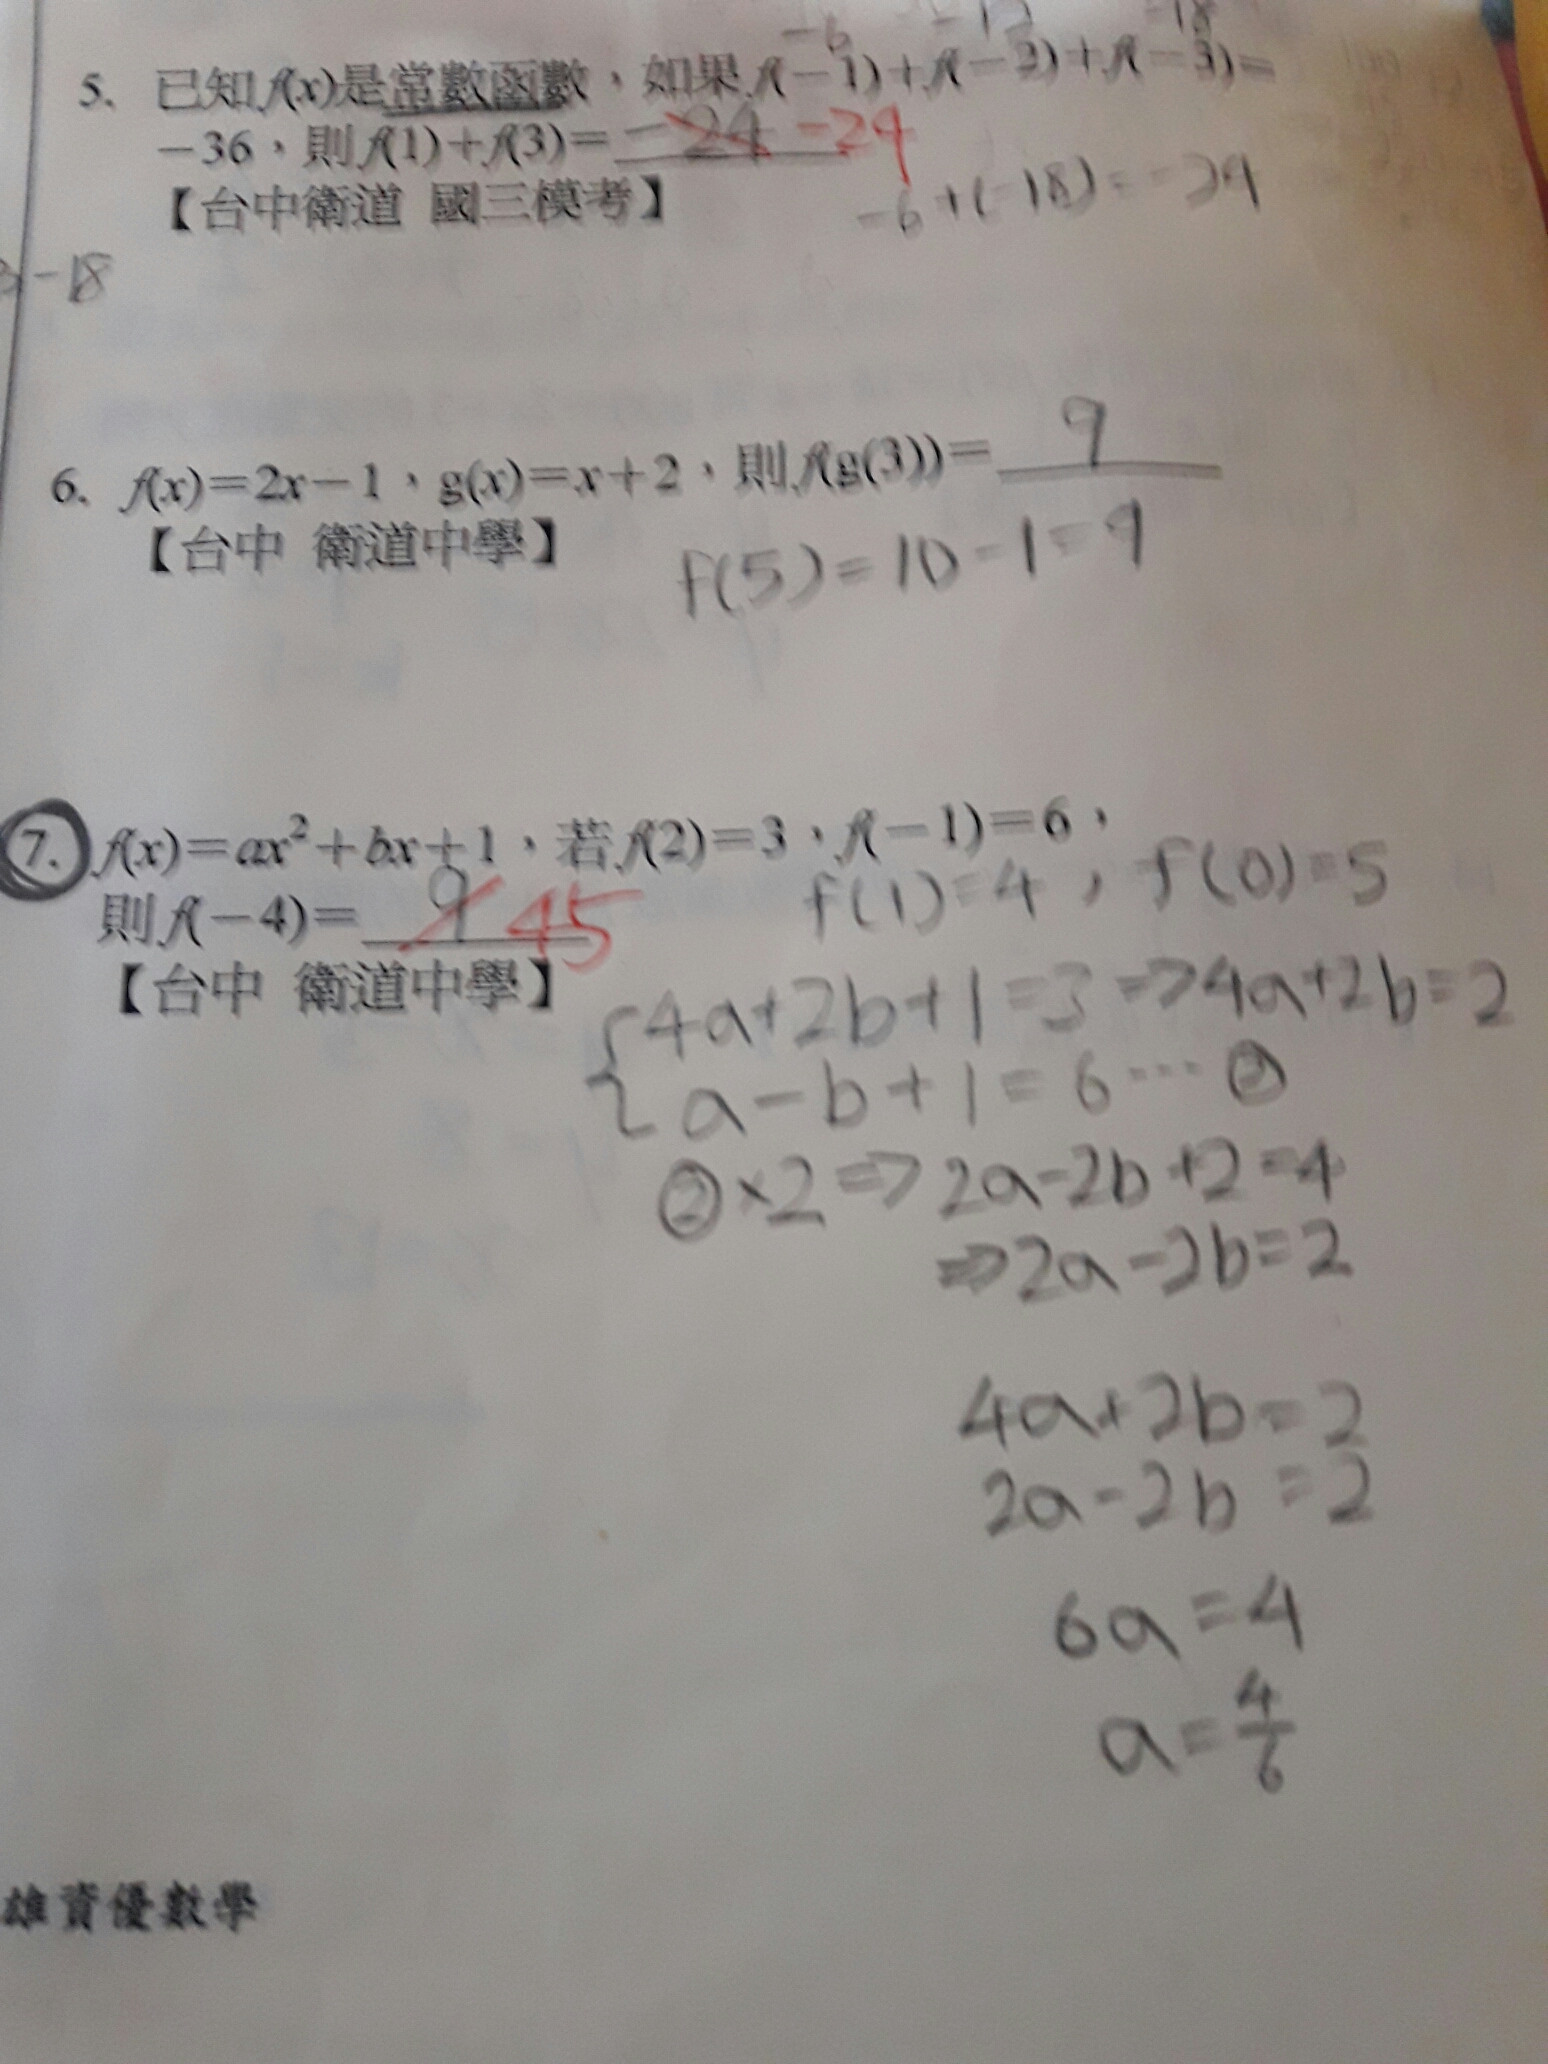 -6 -12 -18
5. 已知f(x)是常數函數，如果f(-1)+f(-2)+f(-3)=
-36，則f(1)+f(3)= -24 -24
【台中衛道 國三模考】 -6+(-18)=-24
-18
6. f(x)=2x-1，g(x)=x+2，則f(g(3))= 9
【台中 衛道中學】 f(5)=10-1=9
7. f(x)=ax²+bx+1，若f(2)=3，f(-1)=6，
f(1)=4，f(0)=5
則f(-4)= 9 45
【台中 衛道中學】
4a+2b+1=3⇒4a+2b=2
a-b+1=6…②
②×2⇒2a-2b+2=4
⇒2a-2b=2
4a+2b=2
2a-2b=2
6a=4
a=4/6
雄資優數學